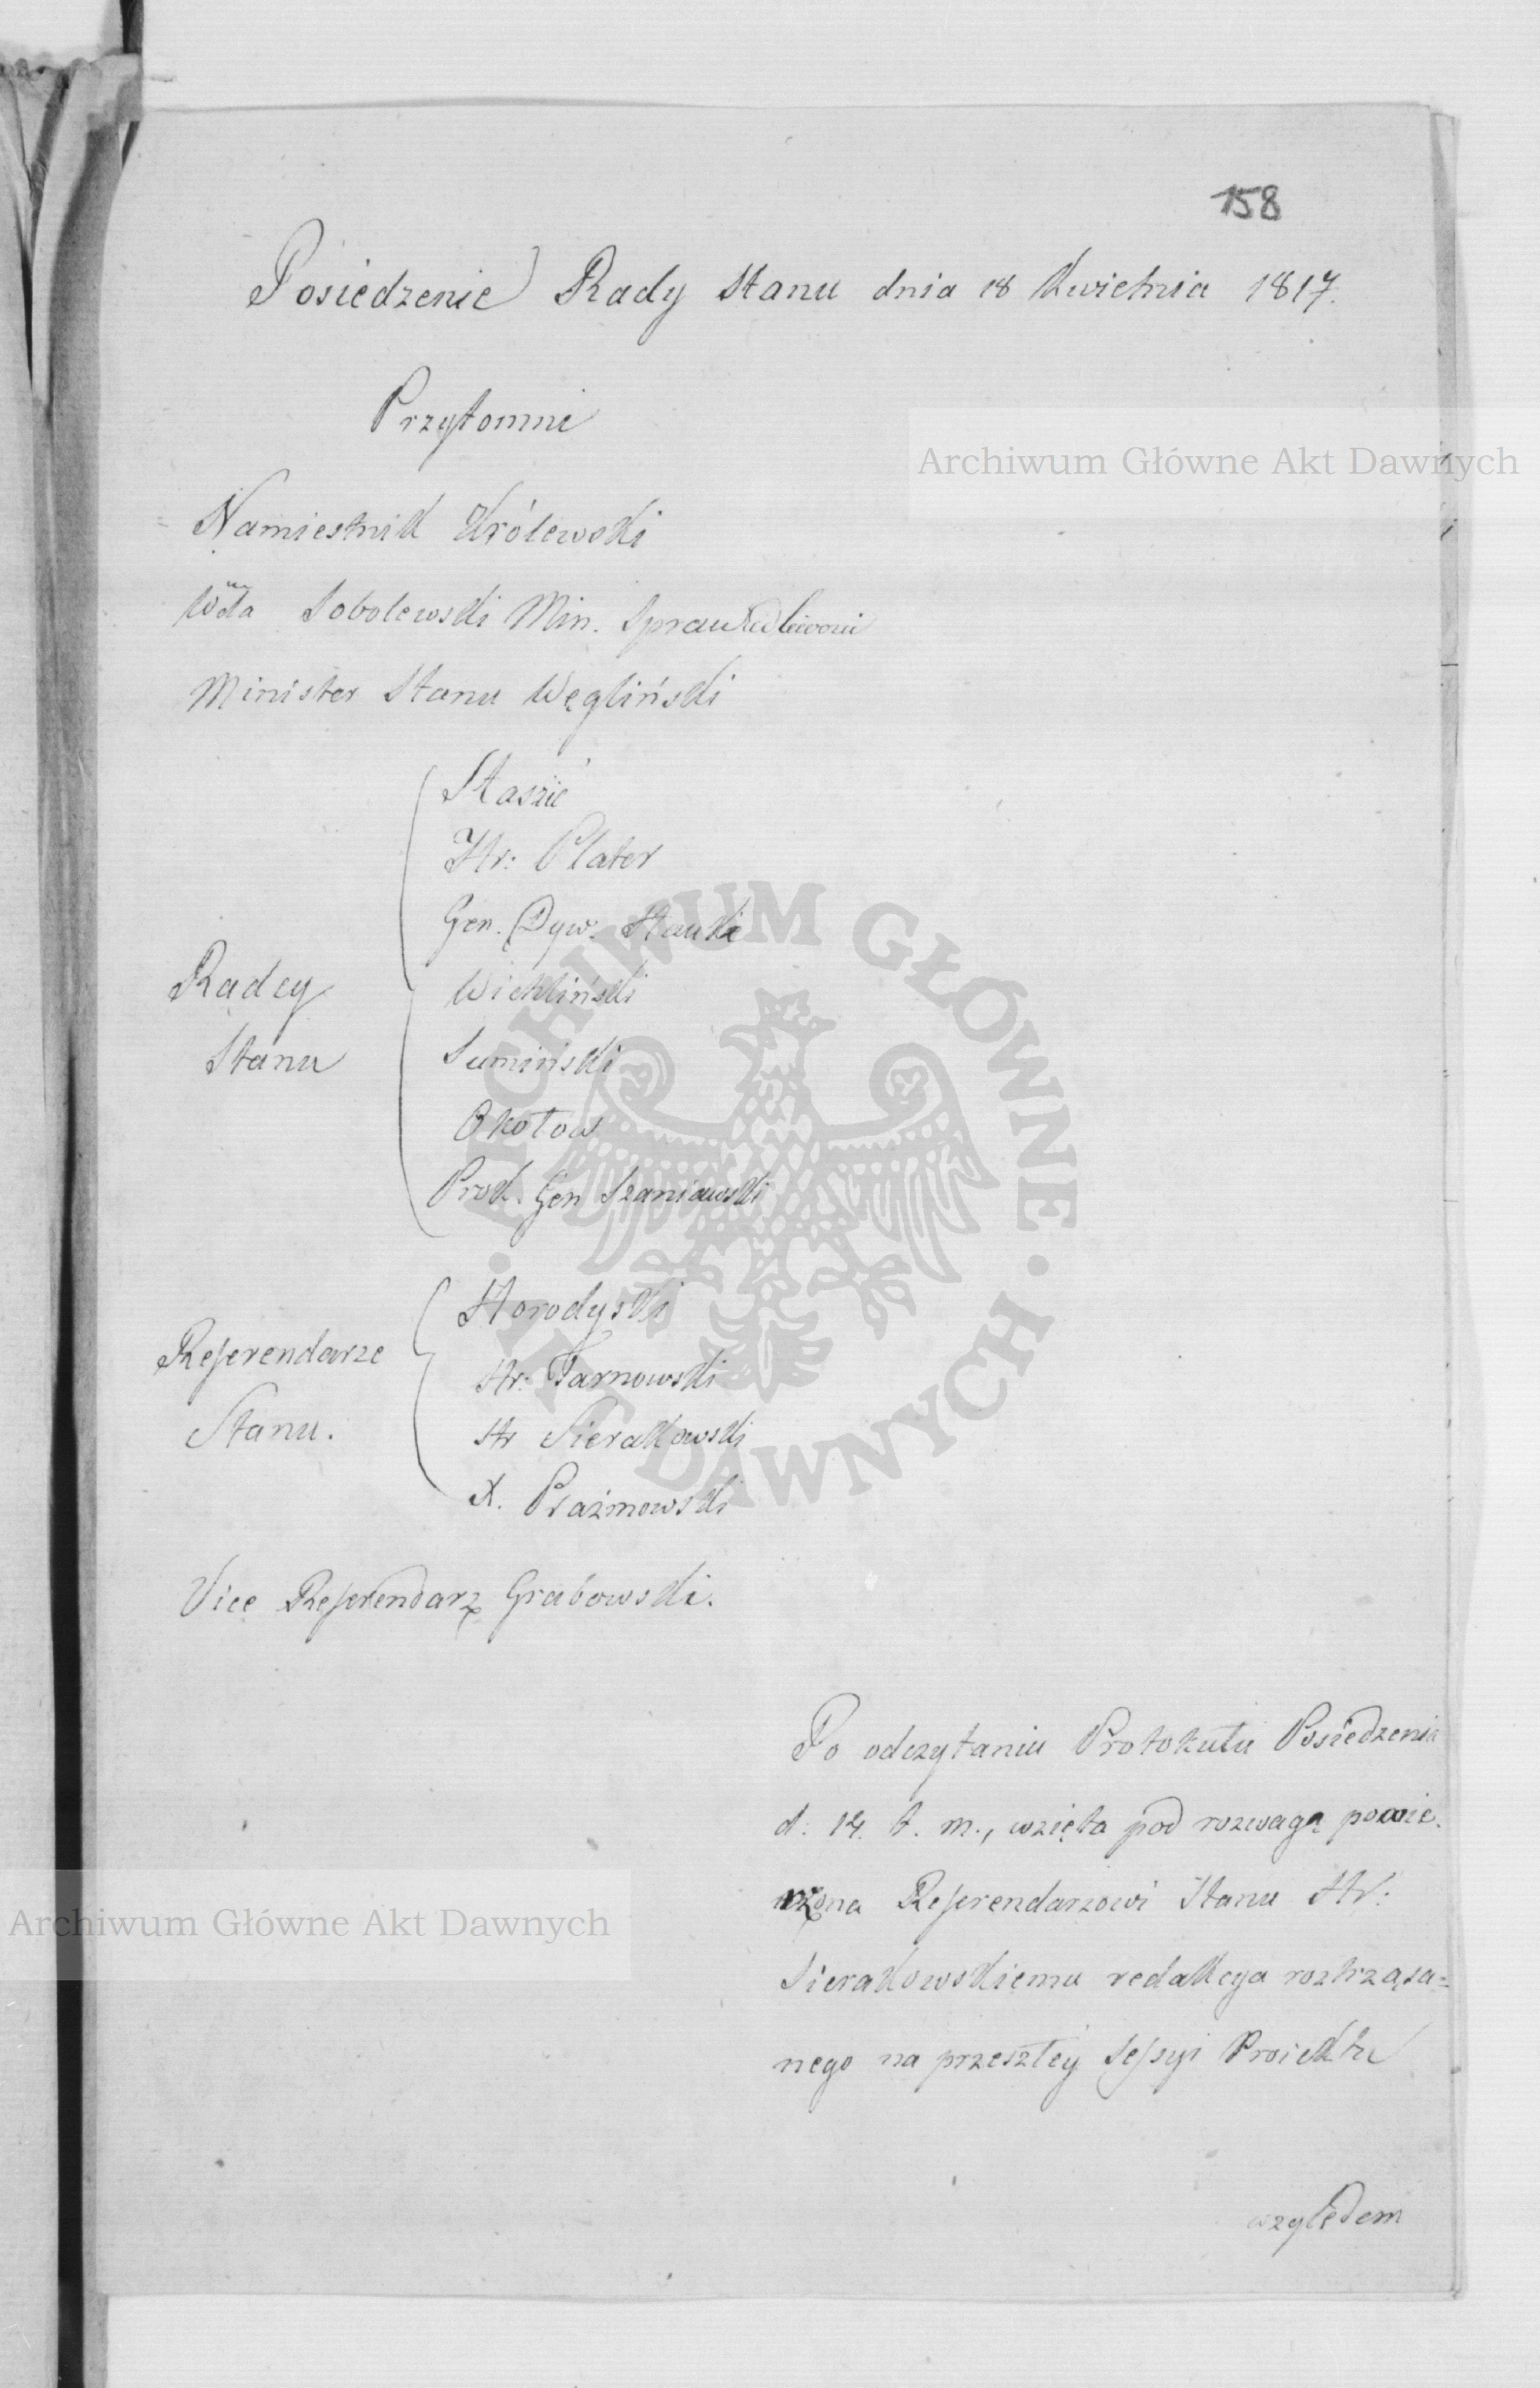 158
Posiedzenie Rady Stanu dnia 18 Kwietnia 1817.
Przytomni
Archiwum Główne Akt Dawnych
Namiestnik Królewski
Wda Sobolewski Min. Sprawiedliwości
Minister Stanu Węgliński
Radcy
Stanu
Staszic
Hr: Plater
Gen. Dyw. Hauke
Wichliński
Sumiński
Okołow
Prok. Gen Szaniawski
Referendarze
Stanu.
Horodyski
Hr: Tarnowski
Hr Sierakowski
X. Prażmowski
Vice Referendarz Grabowski.
ARCHIWUM GŁÓWNE · AKT DAWNYCH ·
Po odczytaniu Protokułu Posiedzenia
d. 14. t. m., wzięta pod rozwagę powie-
rzona Referendarzowi Stanu Hr:
Archiwum Główne Akt Dawnych
Sierakowskiemu redakcya roztrząsa=
nego na przeszłey Sessyi Proiektu
względem